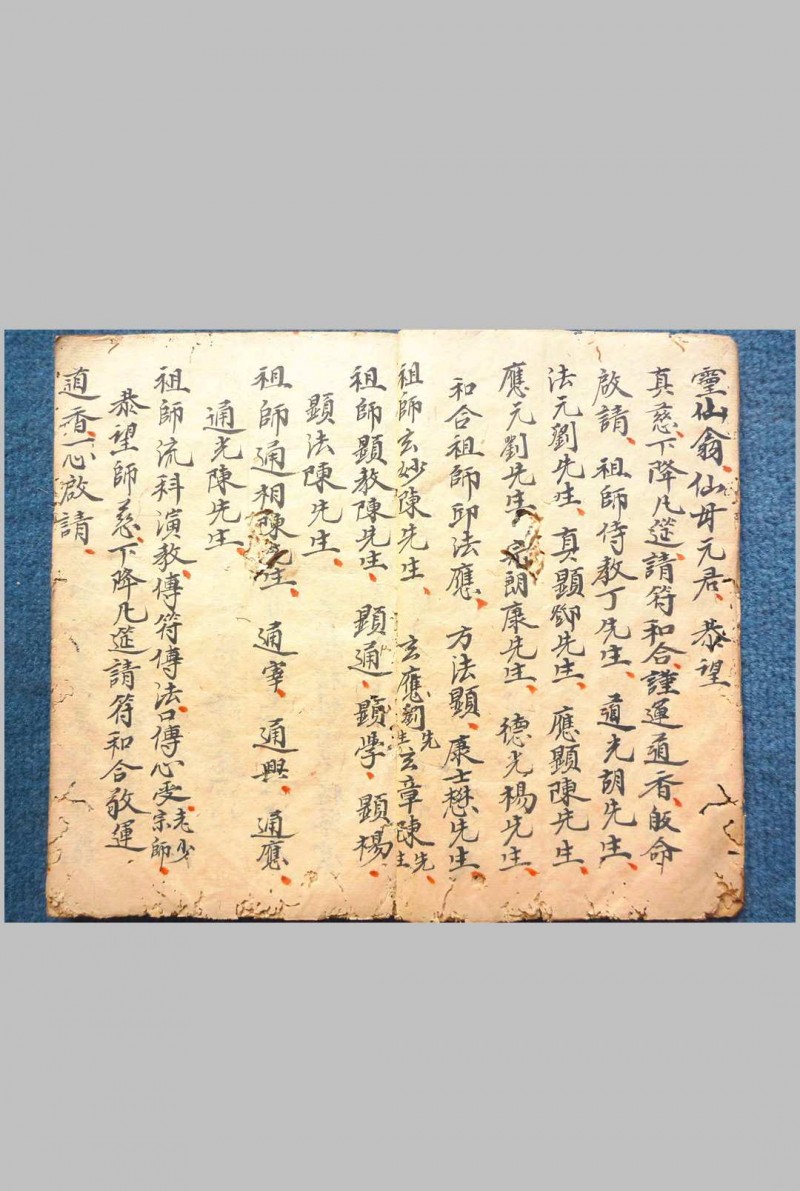 靈仙翁、仙毋元君、恭望
真慈、下降凡筵、請符和合、謹運道香、皈命
啟請、祖師侍教丁先生、道光胡先生、
法元劉先生、真顕鄧先生、應顕陳先生、
應元劉先生、朗康先生、德光楊先生、
和合祖師邱法應、方法顕、康士懋先生、
祖師玄妙陳先生、玄應劉先生玄章陳先生、
祖師顕教陳先生、顕通、顕學、顕楊、
顕法陳先生、
祖師通相陳先生、通寧、通興、通應、
通光陳先生、
祖師流科演教、傳符傳法、口傳心受、老少宗師、
恭望師慈、下降凡筵請符和合敬運
道香一心啟請、